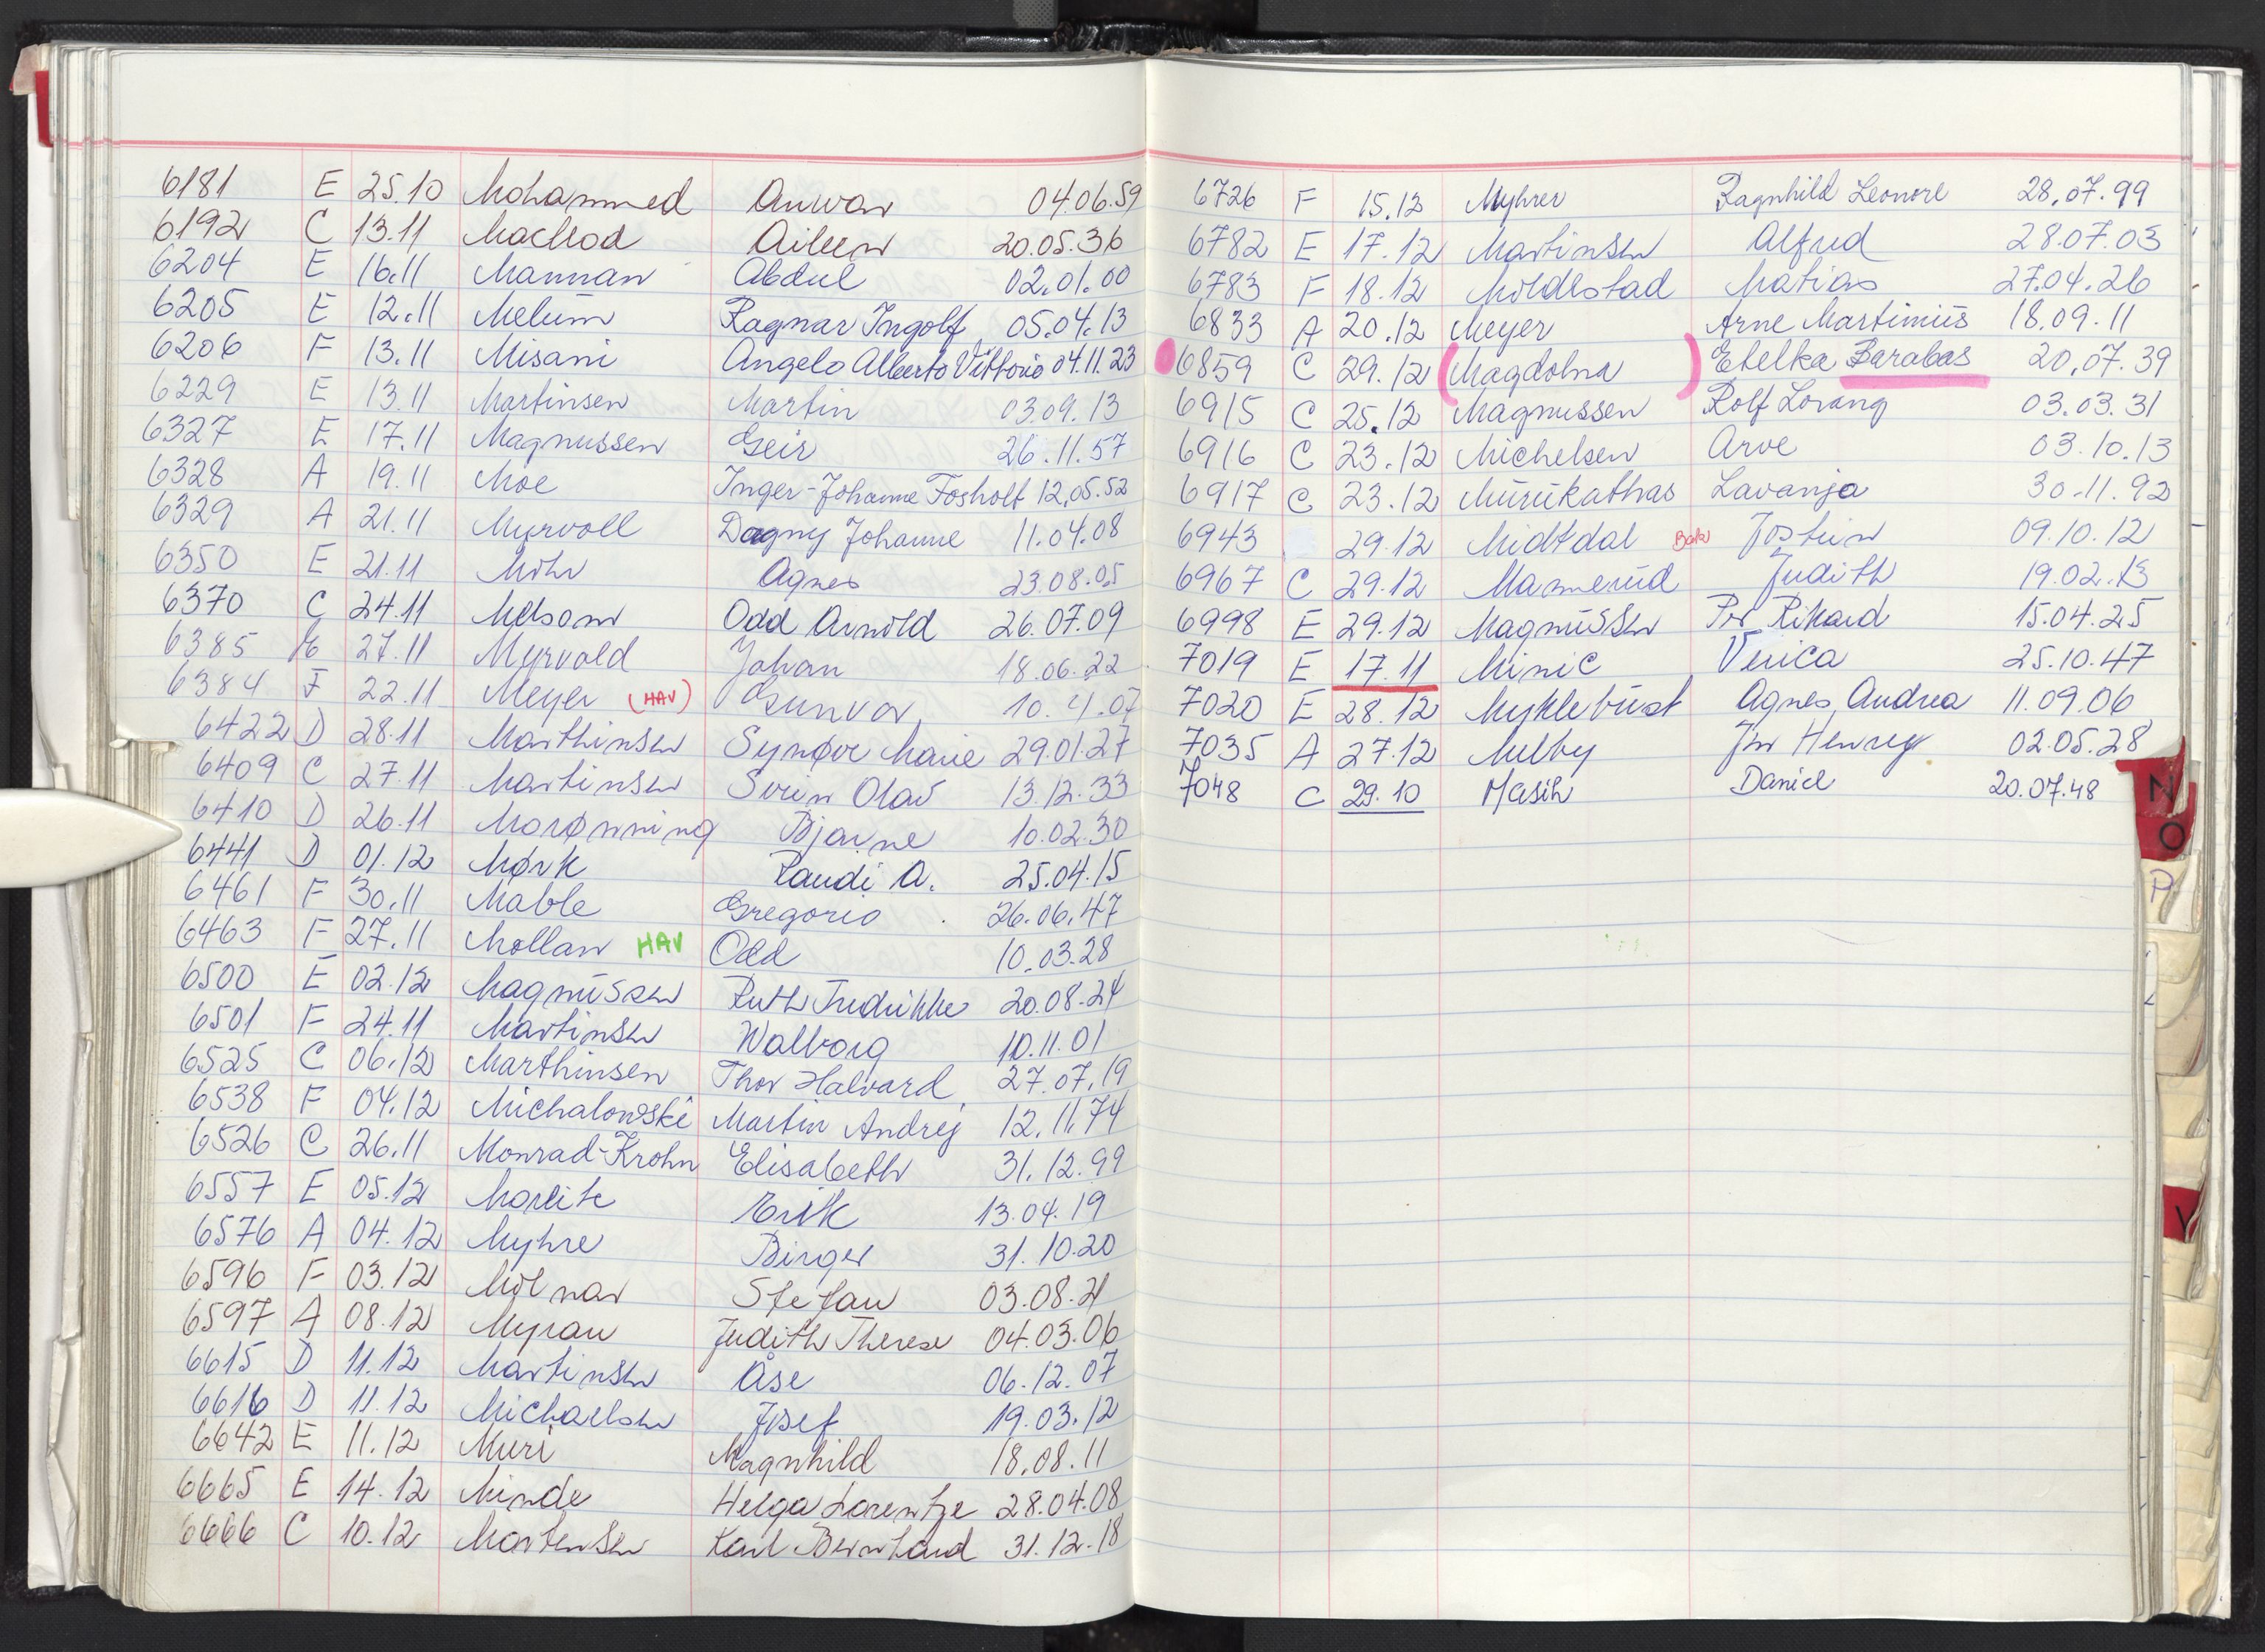 6181 E 25.10 Mohammed Anwar 04.06.59
6192 C 13.11 Macleod Aileen 20.05.36
6204 E 16.11 Mannan Abdul 02.01.00
6205 E 12.11 Melum Ragnar Ingolf 05.04.13
6206 F 13.11 Misani Angelo Alberto Vittorio 04.11.23
6229 E 13.11 Martinsen Martin 03.09.13
6327 E 17.11 Magnussen Geir 26.11.57
6328 A 19.11 Moe Inger-Johanne Fosholt 12.05.52
6329 A 21.11 Myrvoll Dagny Johanne 11.04.08
6350 E 21.11 Mohr Agnes 23.08.05
6370 C 24.11 Melsom Odd Arnold 26.07.09
6385 E 27.11 Myrvold Johan 18.06.22
6384 F 22.11 Meyer (HAV) Gunvor 10.4.07
6422 D 28.11 Marthinsen Synøve Marie 29.01.27
6409 C 27.11 Martinsen Svein Olav 13.12.33
6410 D 26.11 Morønning Bjarne 10.02.30
6441 D 01.12 Mørk Randi A. 25.04.15
6461 F 30.11 Mable Gregorio 26.06.47
6463 F 27.11 Mollan HAV Odd 10.03.28
6500 E 02.12 Magnussen Ruth Fredrikke 20.08.24
6501 F 24.11 Martinsen Walborg 10.11.01
6525 C 06.12 Marthinsen Thor Halvard 27.07.19
6538 F 04.12 Michalowski Martin Andrej 12.11.74
6526 C 26.11 Monrad-Krohn Elisabeth 31.12.99
6557 E 05.12 Moreite Erik 13.04.19
6576 A 04.12 Myhre Birger 31.10.20
6596 F 03.12 Molnar Stefan 03.08.21
6597 A 08.12 Myran Judith Therese 04.03.06
6615 D 11.12 Martinsen Åse 06.12.07
6616 D 11.12 Michaelsen Josef 19.03.12
6642 E 11.12 Muri Magnhild 18.08.11
6665 E 14.12 Minde Helga Lorentze 28.04.08
6666 C 10.12 Mortensen Karl Bernhard 31.12.18
6726 F 15.12 Myhrer Ragnhild Leonore 28.07.99
6782 E 17.12 Martinsen Alfred 28.07.03
6783 F 18.12 Moldestad Matias 27.04.26
6833 A 20.12 Meyer Arne Martinius 18.09.11
6859 C 29.12 (Magdolna) Etelka Barabas 20.07.39
6915 C 25.12 Magnussen Rolf Lorang 03.03.31
6916 C 23.12 Michelsen Arve 03.10.13
6917 C 23.12 Murukathas Lavanja 30.11.92
6943 29.12 Midtdal Bak Jostein 09.10.12
6967 C 29.12 Mamerud Judith 19.02.13
6998 E 29.12 Magnussen Per Rikard 15.04.25
7019 E 17.11 Minic Verica 25.10.47
7020 E 28.12 Myklebust Agnes Andrea 11.09.06
7035 A 27.12 Melby Jon Henrey 02.05.28
7048 C 29.10 Masih Daniel 20.07.48
N
O
P
V